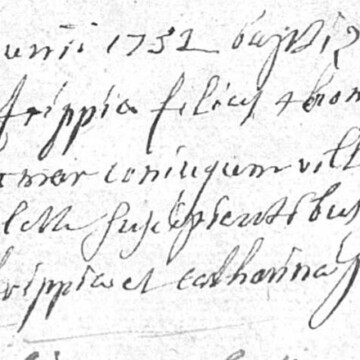 unii 1732 bapti
frippia filius thom
mar coniugum vill
suscipientibus
rippia et catharina